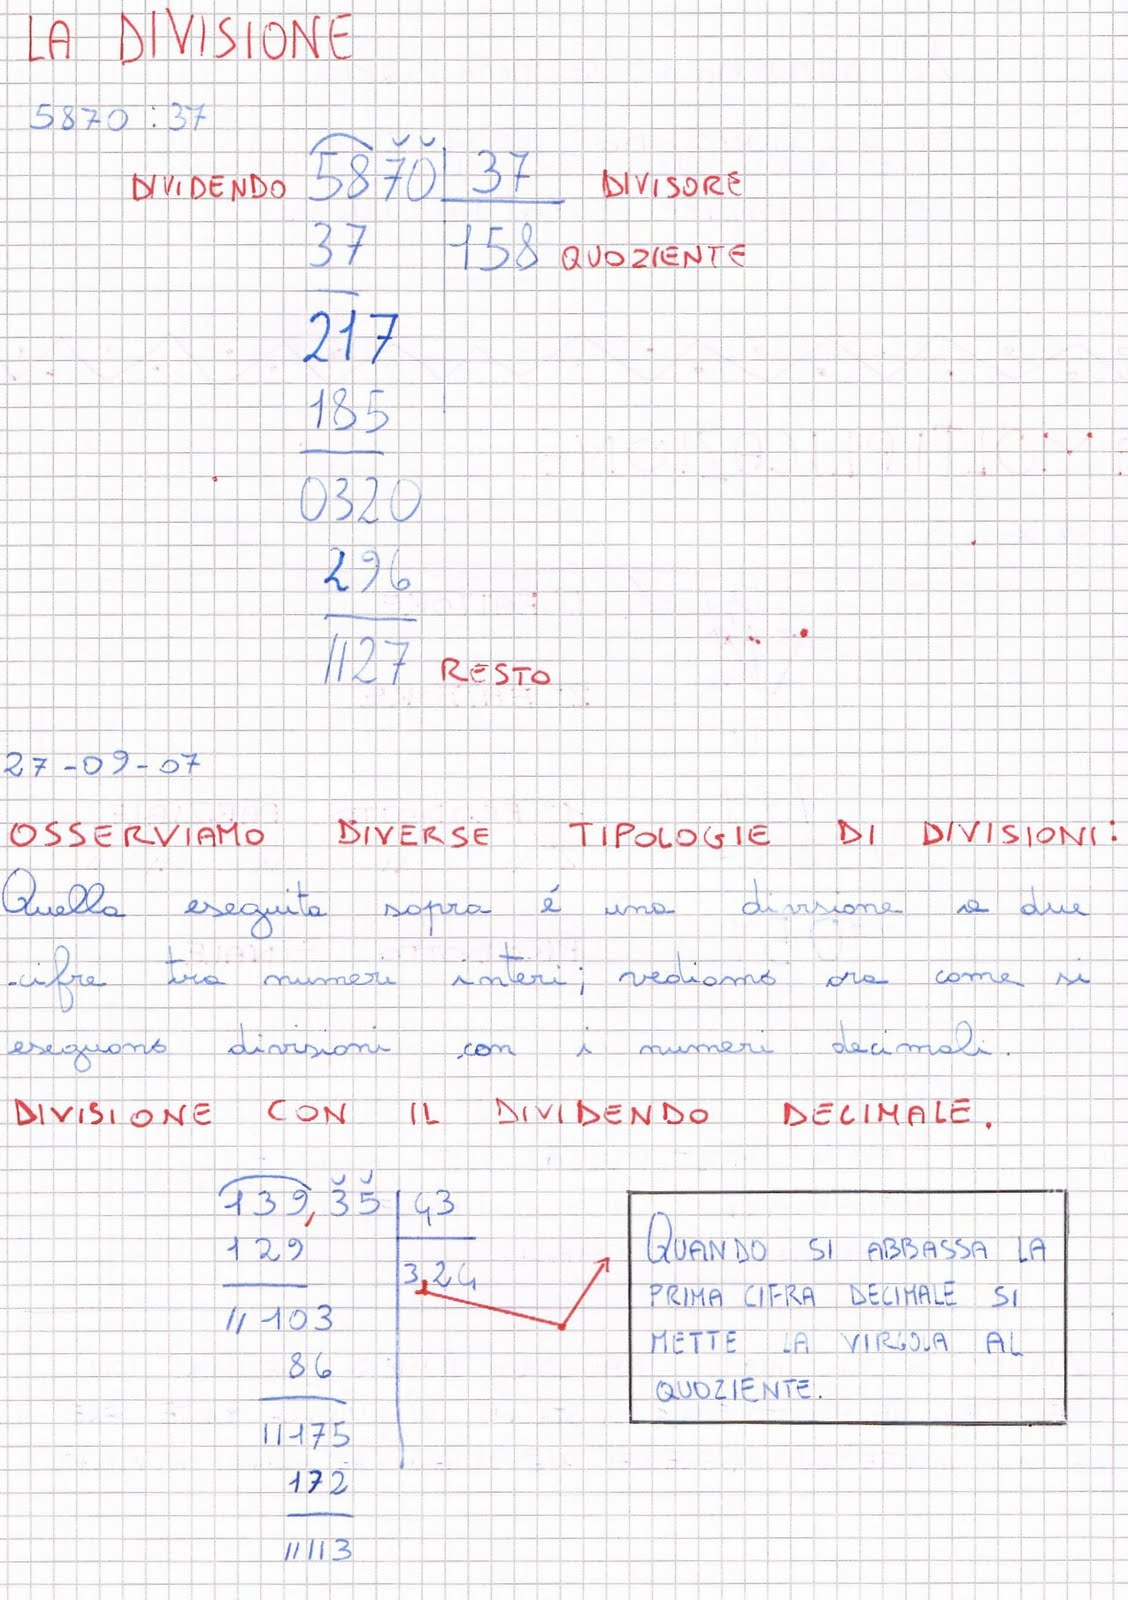 LA DIVISIONE
5870 : 37
DIVIDENDO 5870 37 DIVISORE
37 158 QUOZIENTE
217
185
0320
296
//27 RESTO
27-09-07
OSSERVIAMO DIVERSE TIPOLOGIE DI DIVISIONI:
Quella eseguita sopra é una divisione a due
cifre tra numeri interi; vediamo ora come si
eseguono divisioni con i numeri decimali.
DIVISIONE CON IL DIVIDENDO DECIMALE.
139,35 43
129 3,24
// 103
86
//175
172
////3
QUANDO SI ABBASSA LA
PRIMA CIFRA DECIMALE SI
METTE LA VIRGOLA AL
QUOZIENTE.